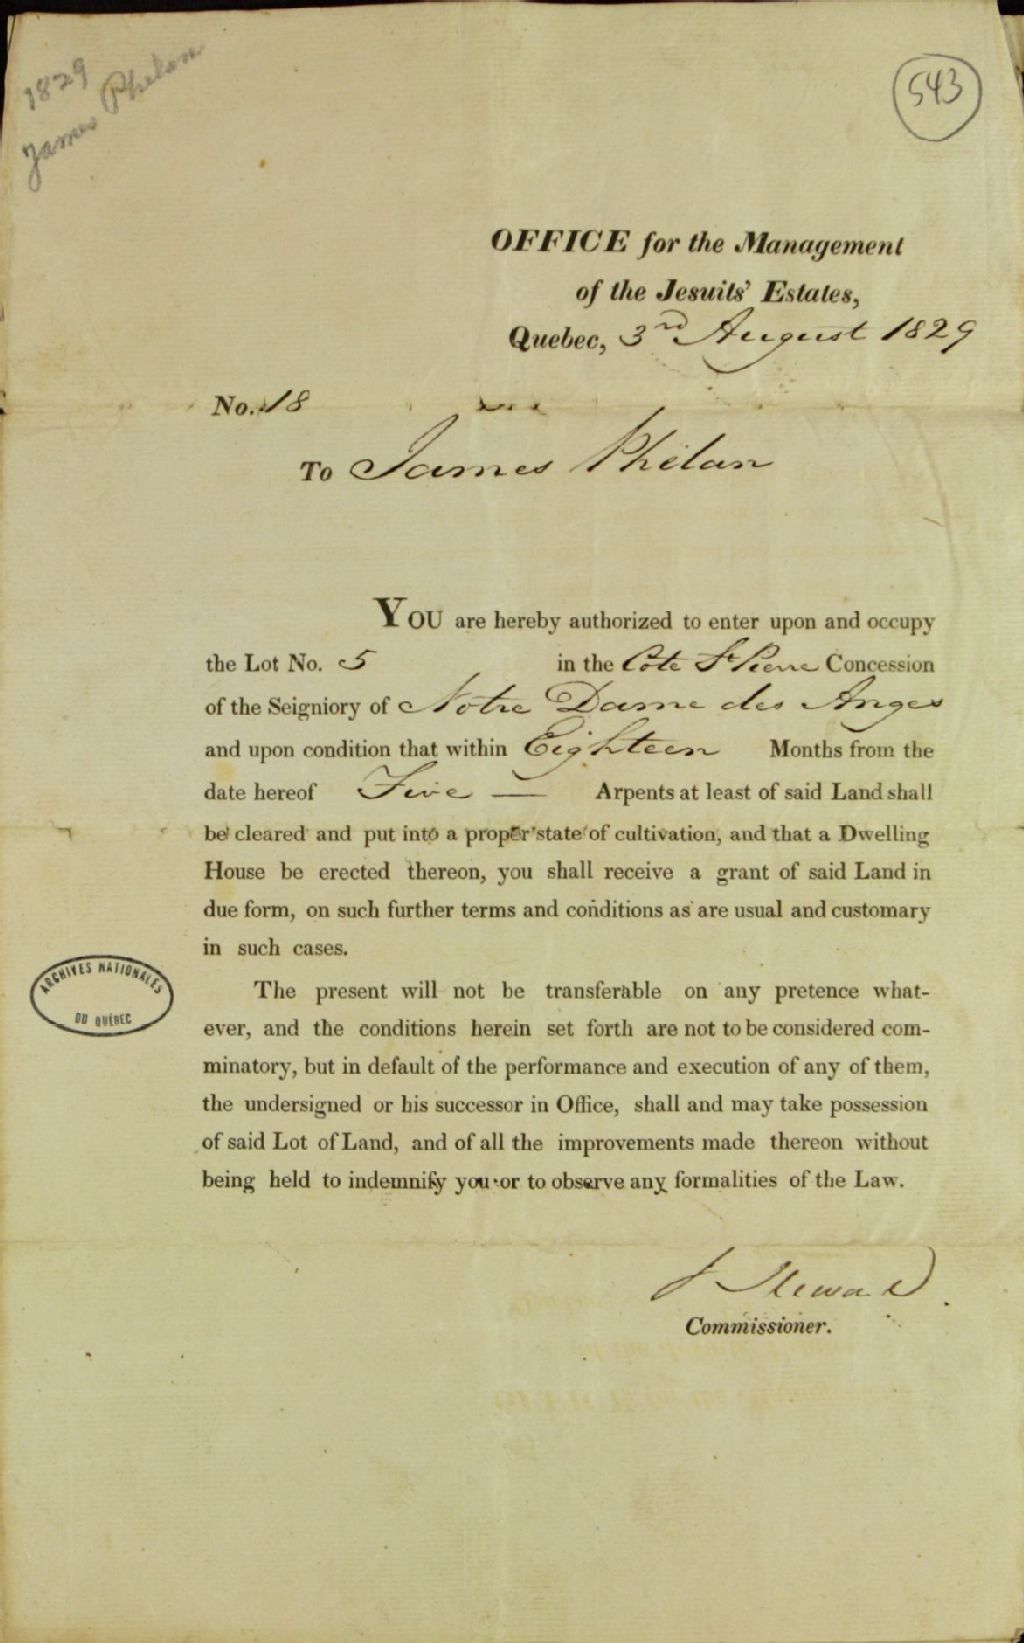 1829
James Phelan
543
OFFICE for the Management
of the Jesuits' Estates,
Quebec, 3rd August 1829
No. 18
To James Phelan
YOU are hereby authorized to enter upon and occupy
the Lot No. 5 in the Cote St Pierre Concession
of the Seigniory of Notre Dame des Anges
and upon condition that within Eighteen Months from the
date hereof Five — Arpents at least of said Land shall
be cleared and put into a proper state of cultivation, and that a Dwelling
House be erected thereon, you shall receive a grant of said Land in
due form, on such further terms and conditions as are usual and customary
in such cases.
ARCHIVES NATIONALES
DU QUÉBEC
The present will not be transferable on any pretence what-
ever, and the conditions herein set forth are not to be considered com-
minatory, but in default of the performance and execution of any of them,
the undersigned or his successor in Office, shall and may take possession
of said Lot of Land, and of all the improvements made thereon without
being held to indemnify you or to observe any formalities of the Law.
J Stewart
Commissioner.